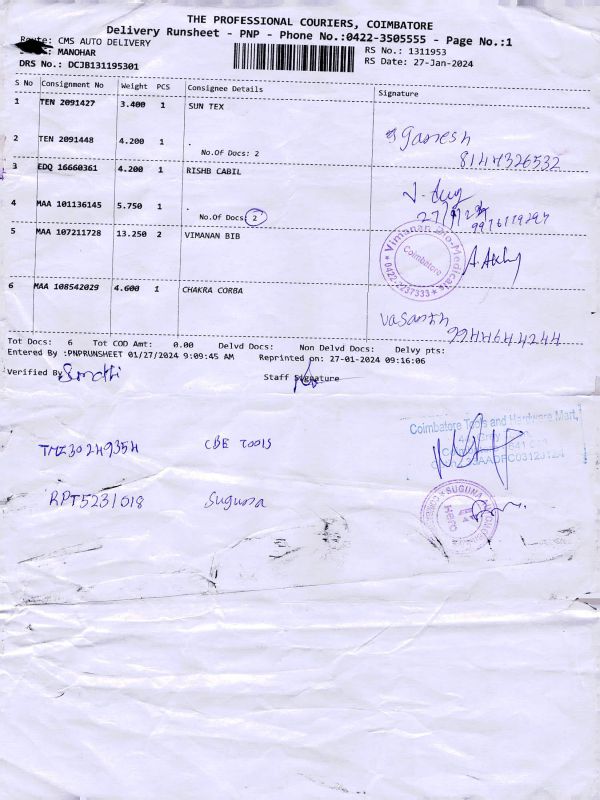 THE PROFESSIONAL COURIERS, COIMBATORE
Delivery Runsheet - PNP - Phone No.:0422-3505555 - Page No.:1
Route: CMS AUTO DELIVERY
RS No.: 1311953
: MANOHAR
RS Date: 27-Jan-2024
DRS No.: DCJB131195301
S No Consignment No Weight PCS Consignee Details Signature
1 TEN 2091427 3.400 1 SUN TEX
2 TEN 2091448 4.200 1 .
Ganesh
No.Of Docs: 2
8144326532
3 EDQ 16660361 4.200 1 RISHB CABIL
4 MAA 101136145 5.750 1 .
No.Of Docs: 2
5 MAA 107211728 13.250 2 VIMANAN BIB
Vimanan Bio-Medicals
Coimbatore
6 MAA 108542029 4.600 1 CHAKRA CORBA
Vasanth
Tot Docs: 6 Tot COD Amt: 0.00 Delvd Docs: Non Delvd Docs: Delvy pts:
Entered By :PNPRUNSHEET 01/27/2024 9:09:45 AM Reprinted on: 27-01-2024 09:16:06
Verified By
Staff Signature
Coimbatore Tools and Hardware Mart,
CBE TOOLS
RPT5231018 Suguna
SUGUNA